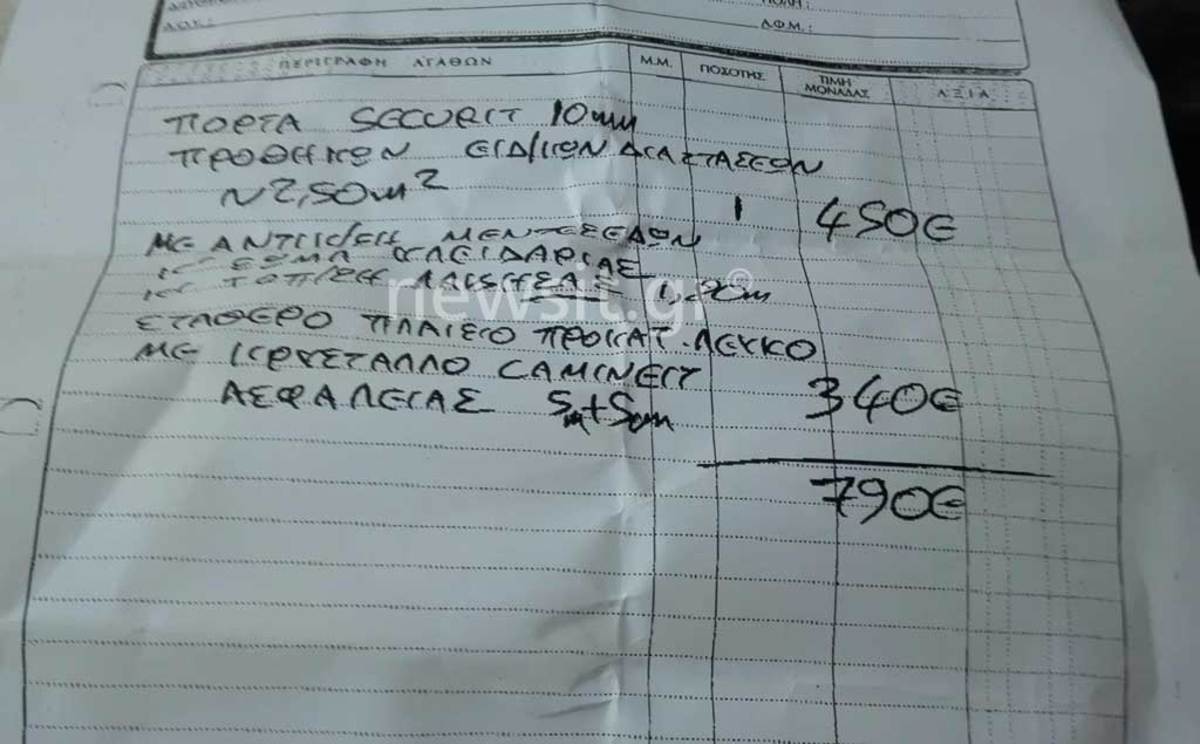 Δ.Ο.Υ.:
Α.Φ.Μ.:
ΠΕΡΙΓΡΑΦΗ ΑΓΑΘΩΝ Μ.Μ. ΠΟΣΟΤΗΣ ΤΙΜΗ ΜΟΝΑΔΑΣ ΑΞΙΑ
ΠΟΡΤΑ SECURIT 10mm
ΠΡΟΘΗΚΩΝ ΕΙΔΙΚΩΝ ΔΙΑΣΤΑΣΕΩΝ
~2,50m² 1 450€
ΜΕ ΑΝΤΙΚ/ΣΗ ΜΕΝΤΕΣΕΔΩΝ
ΚΛΕΙΔΑΡΙΑΣ
1,20m
newsit.gr©
ΣΤΑΘΕΡΟ ΠΛΑΙΣΙΟ ΠΡΟΚΑΤ. ΛΕΥΚΟ
ΜΕ ΚΡΥΣΤΑΛΛΟ LAMINEIT
ΑΣΦΑΛΕΙΑΣ 5m+5mm 340€
790€